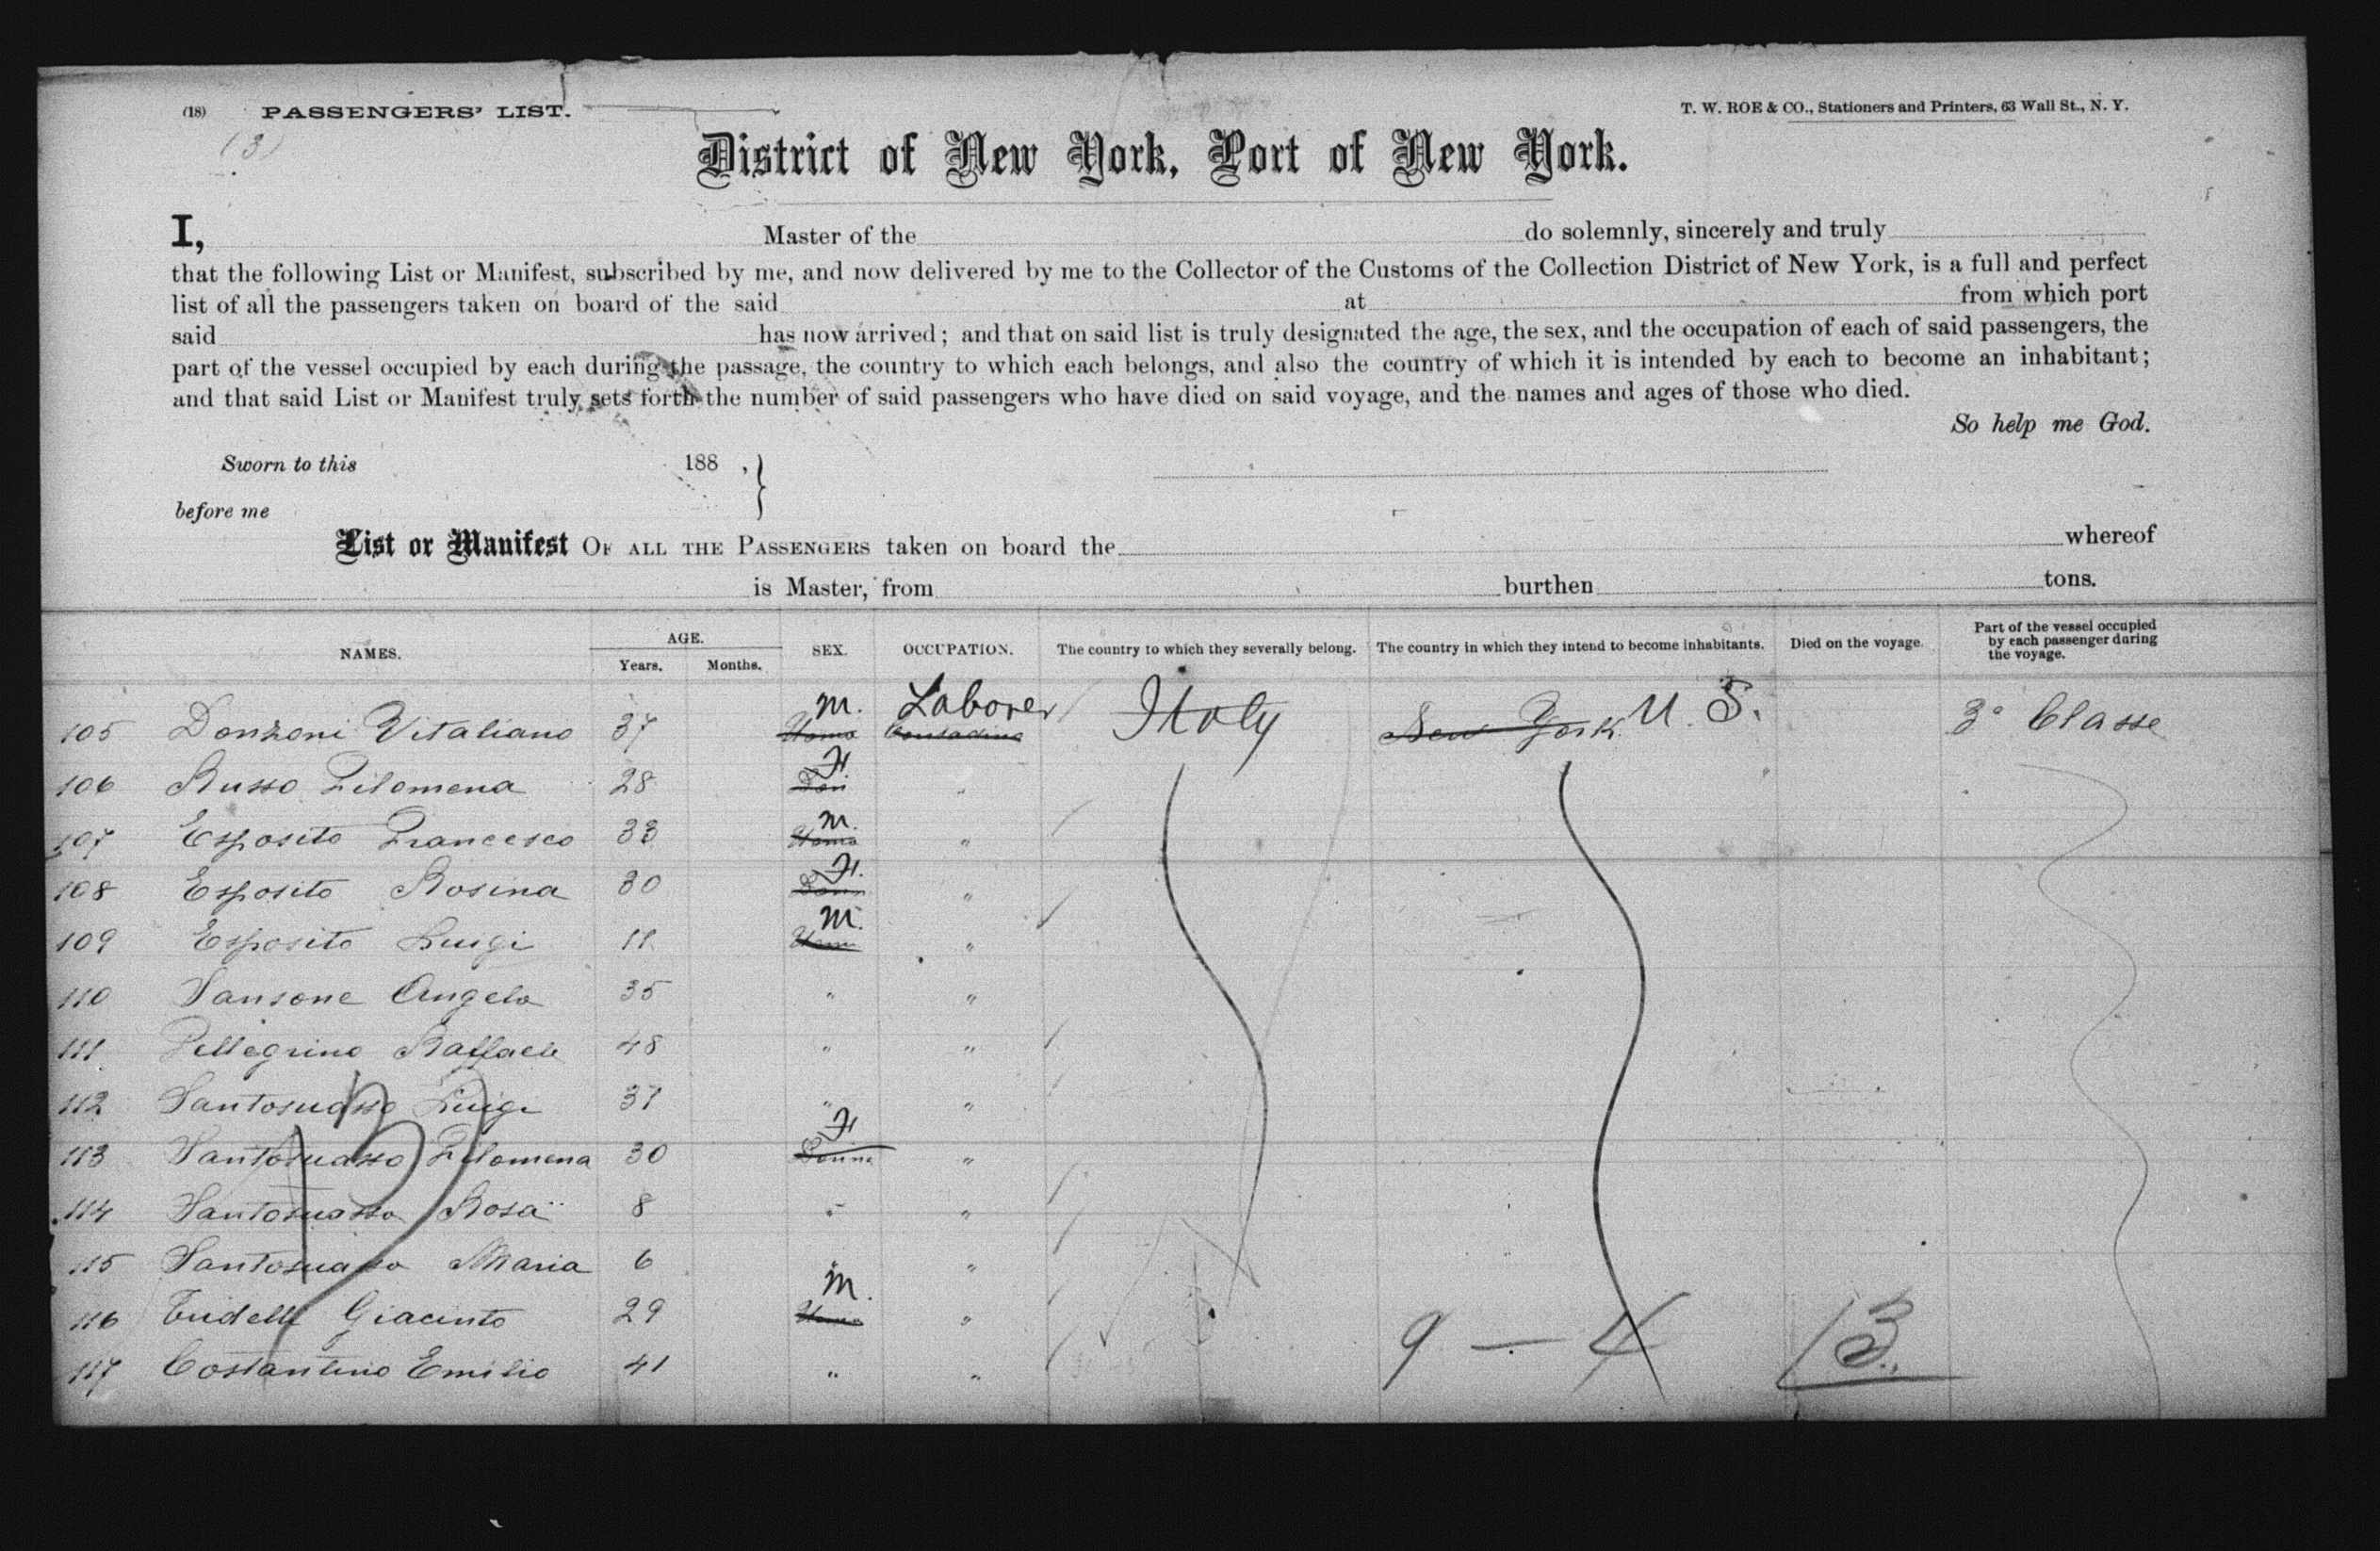 (18) PASSENGERS' LIST. T. W. ROE & CO., Stationers and Printers, 63 Wall St., N. Y.
(3)
District of New York, Port of New York.
I, Master of the do solemnly, sincerely and truly
that the following List or Manifest, subscribed by me, and now delivered by me to the Collector of the Customs of the Collection District of New York, is a full and perfect
list of all the passengers taken on board of the said at from which port
said has now arrived; and that on said list is truly designated the age, the sex, and the occupation of each of said passengers, the
part of the vessel occupied by each during the passage, the country to which each belongs, and also the country of which it is intended by each to become an inhabitant;
and that said List or Manifest truly sets forth the number of said passengers who have died on said voyage, and the names and ages of those who died.
So help me God.
Sworn to this 188 , }
before me
List or Manifest OF ALL THE PASSENGERS taken on board the whereof
is Master, from burthen tons.
NAMES. AGE. Years. Months. SEX. OCCUPATION. The country to which they severally belong. The country in which they intend to become inhabitants. Died on the voyage. Part of the vessel occupied by each passenger during the voyage.
105 Donzoni Vitaliano 37 Uomo M. Contadino Laborer Italy New York U. S. 3a Classe
106 Russo Filomena 28 Don F. "
107 Esposito Francesco 33 Uomo M. "
108 Esposito Rosina 30 Donn F. "
109 Esposito Luigi 11 Uomo M. "
110 Sansone Angelo 35 " "
111 Pellegrino Raffaele 48 " "
112 Santosuasso Luigi 37 " "
113 Santosuasso Filomena 30 Donna F. "
114 Santosuasso Rosa 8 " "
115 Santosuasso Maria 6 "
116 Giacinto 29 Uomo M. "
117 Costantino Emilio 41 " "
9 - 4 13.